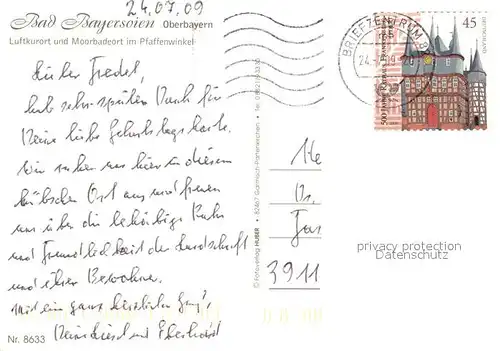 24.07.09
Bad Bayersoien Oberbayern
Luftkurort und Moorbadeort im Pfaffenwinkel
Lieber Fredel,
hab sehr späten Dank für
Deine liebe Geburtstagskarte.
Wir ruhen uns hier in diesem
hübschen Ort aus und freuen
uns über die behörige Ruhe
und Freundlichkeit der Landschaft
und ihrer Bewohner.
Mit ein ganz herzlicher Gruß,
und Eberhard
Nr. 8633
© Fotoverlag HUBER • 82467 Garmisch-Partenkirchen • Tel.
BRIEFZENTRUM 8
24.-7.09
45
DEUTSCHLAND
500 JAHRE
3911
privacy protection
Datenschutz